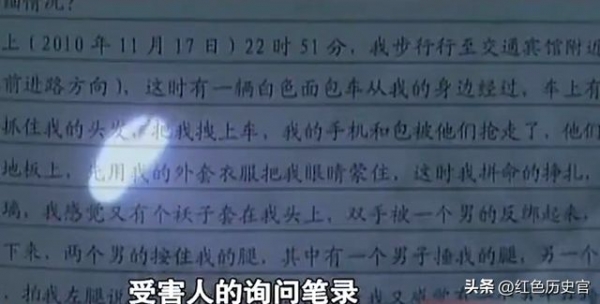 细情况？
上（2010年11月17日）22时51分，我步行行至交通宾馆附近
前进路方向），这时有一辆白色面包车从我的身边经过，车上有
抓住我的头发，把我拽上车，我的手机和包被他们抢走了，他们
地板上，先用我的外套衣服把我眼睛蒙住，这时我拼命的挣扎，
喃，我感觉又有个袄子套在我头上，双手被一个男的反绑起来，
下来，两个男的按住我的腿，其中有一个男子捶我的腿，另一个
，拍我左腿说
受害人的询问笔录
头条 @红色历史官